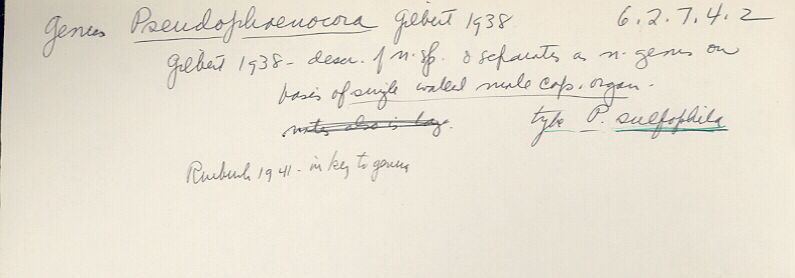 Genus Pseudophaenocora Gilbert 1938 6.2.7.4.2
Gilbert 1938 - descr. of n. sp. & separates as n. genus on
basis of single walled male cop. organ.
notes also is type P. sulfophila
Ruebush 1941 - in key to genera